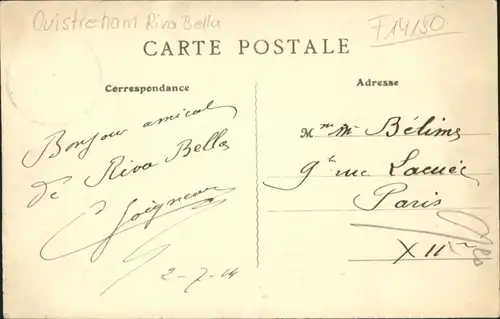 Ouistreham Riva Bella
F14150
CARTE POSTALE
Correspondance
Adresse
Bonjour amical
de Riva Bella
2-7-14
M
Béline
9 rue Lacuée
Paris
XII